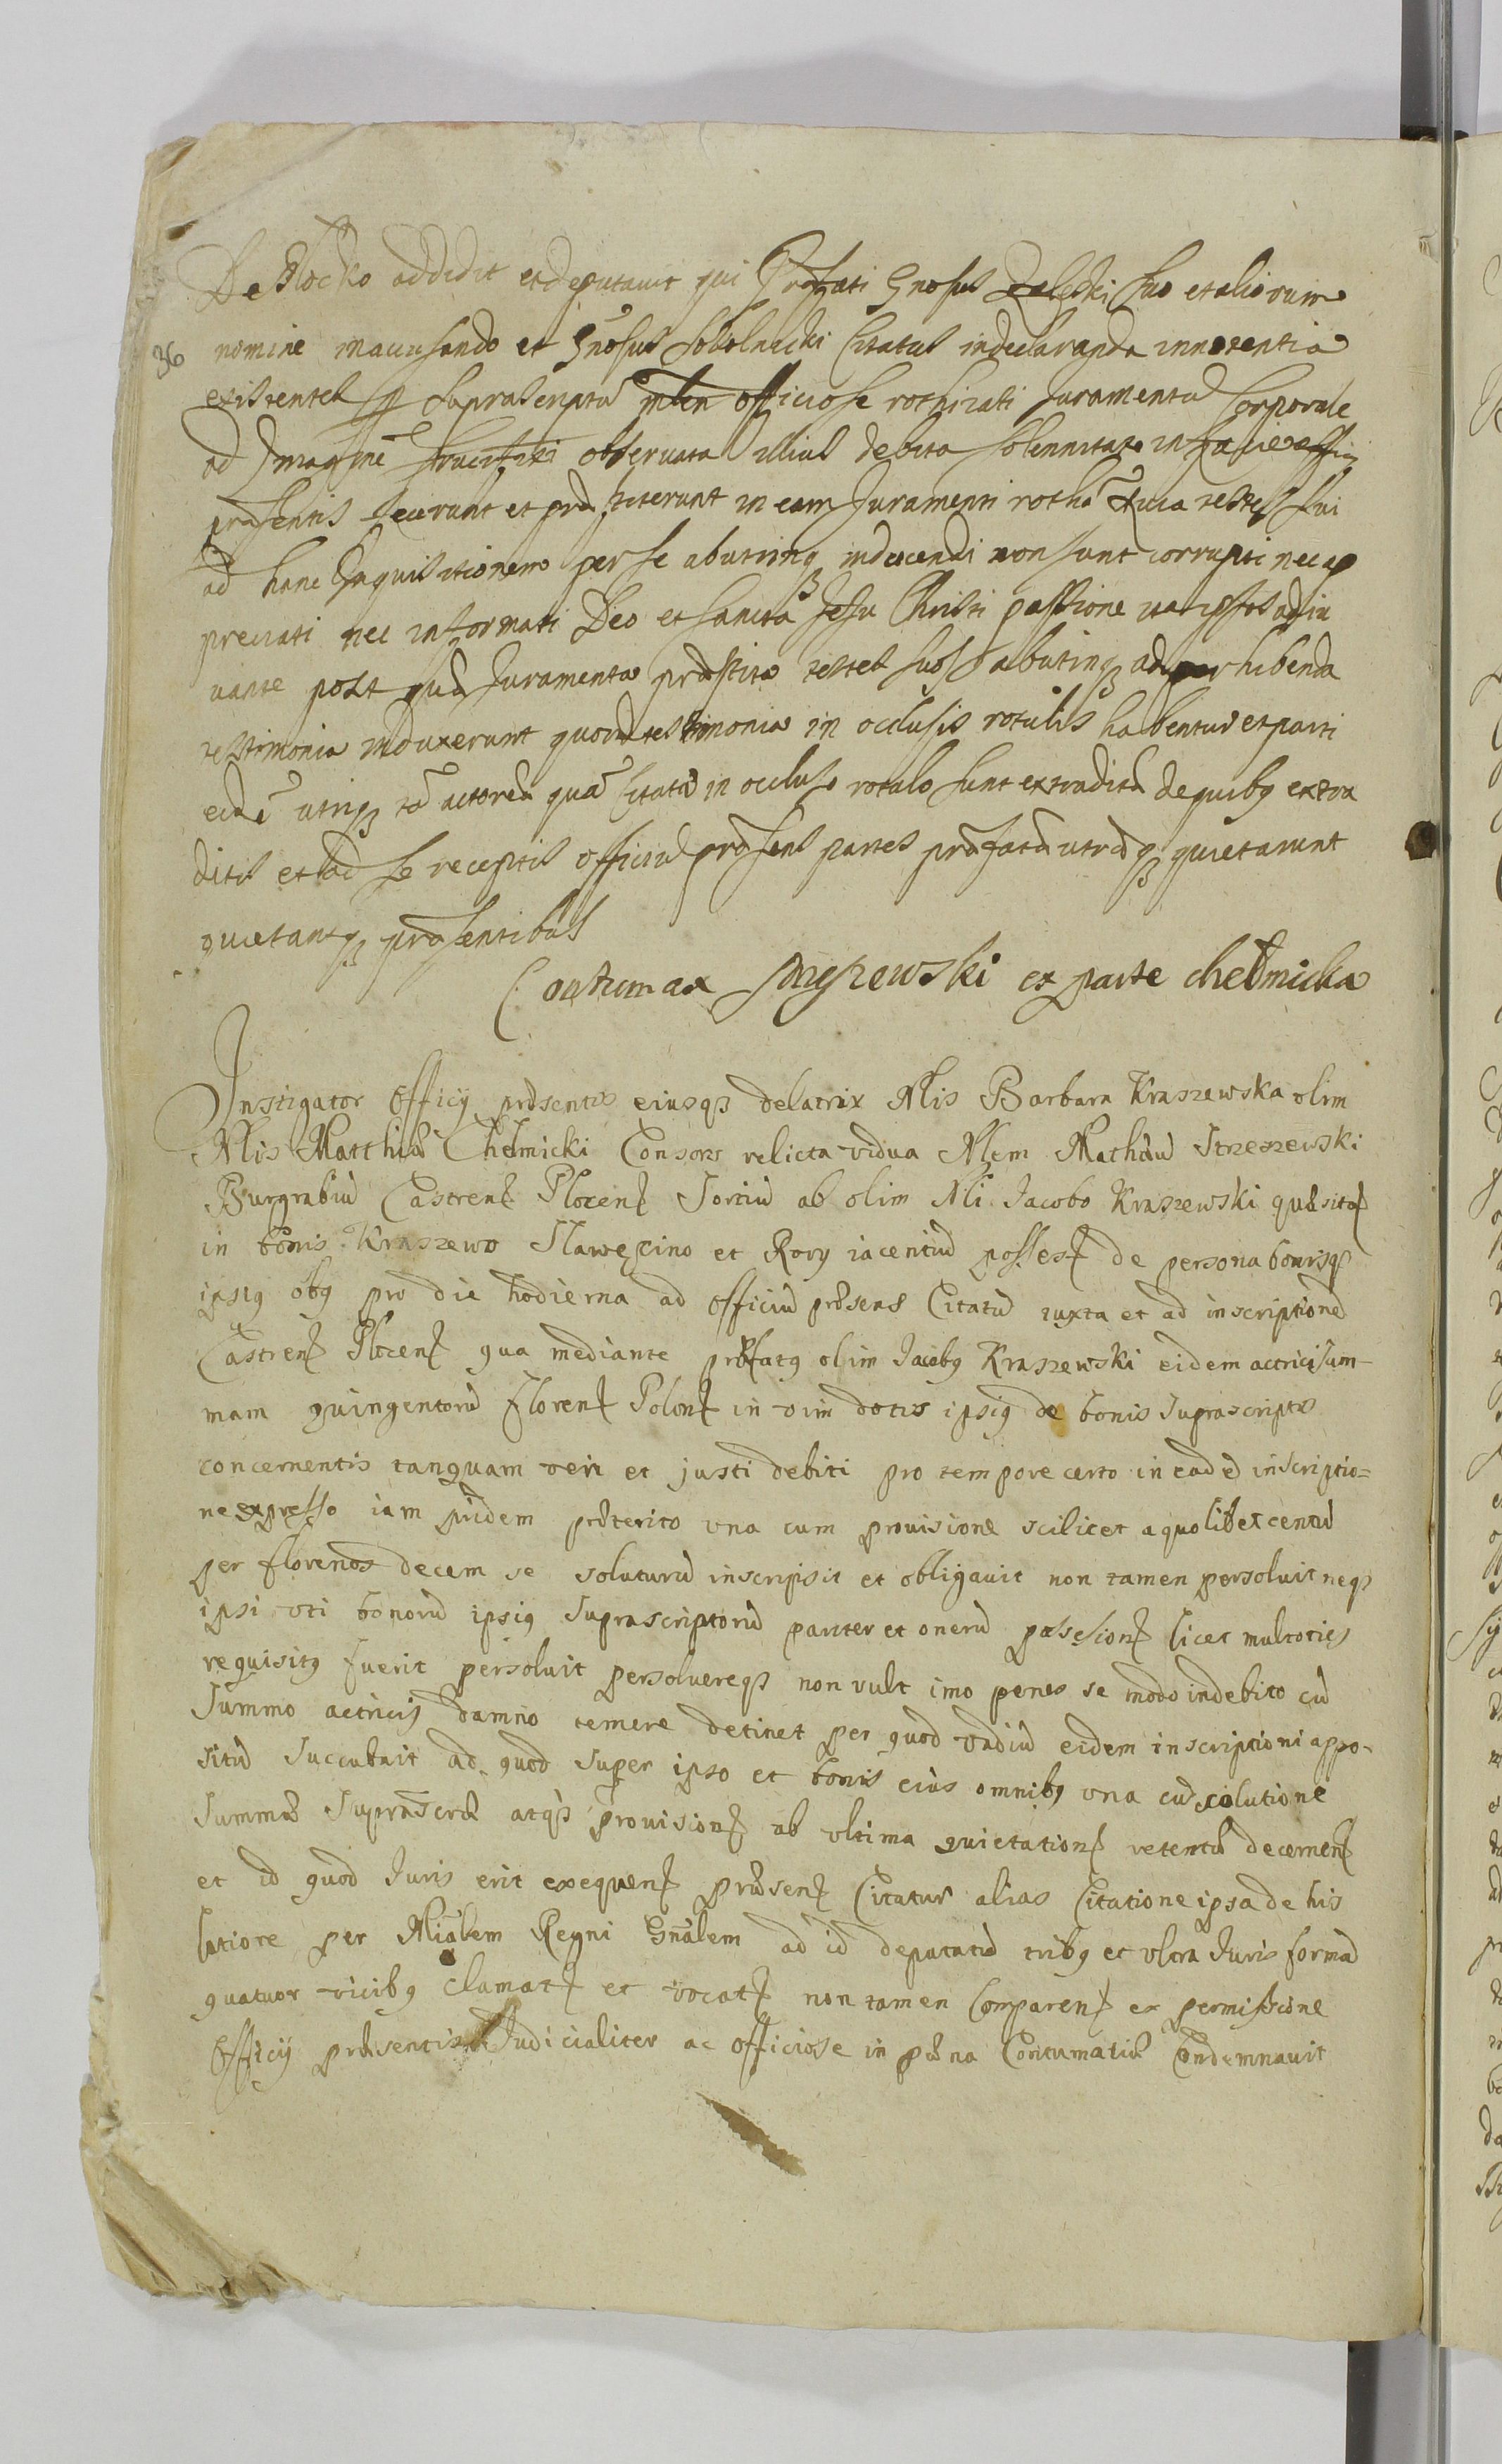 De Plocko addidit et deputavit qui Præfati Gnosus Zaleski suo et aliorum
36
nomine in accusando et Gnosus Sobolnicki Citatus in declaranda innocentia
existentes suprascriptũ officiose rothizati Juramentũ Corporale
ad Imaginẽ Crucifixi observata illius debita solennitate in facie offici
præsentis fecerunt et præstiterunt in eam Juramenti rothã Quia testes sui
ad hanc Inquisitionem per se ab utrinq inducendi non sunt corrupti nec ap
preciati nec informati Deo et sancta Jesu Christi passione ipsos adiu
vante post quæ Juramenta præstita testes suos ab utrinq ad perhibenda
testimonia induxerunt quorũ testimonia in occlusis rotulis habentur et parti
eidẽ utriq tã actoreæ quã Citatæ in occluso rotulo sunt extradita de quibq extra
ditis et ad se receptis officiũ præsens partes præfatæ utræq quietarunt
quietantq præsentibus
Contumax Strzeszewski ex parte Chełmicka
Instigator Officij præsentis eiusq delatrix Nlis Barbara Kraszewska olim
Nlis Matthiæ Chełmicki Consors relicta vidua Nlem Mathæũ Strzeszewski
Burgrabiũ Castren Plocen Sortiũ ab olim Nli Jacobo Kraszewski quæsitaȓ
in bonis Kraszewo Sławęcino et Rory iacentiũ possess de persona bonisq
ipsiq obq pro die hodierna ad Officiũ præsens Citatũ iuxta et ad inscriptionẽ
Castren Plocen qua mediante præfatq olim Jacobq Kraszewski eidem actrici sum-
mam quingentorũ Floren Polon in vim dotis ipsiq de bonis suprascriptis
concernentis tanquam veri et justi debiti pro tempore certo in eadẽ inscriptio=
ne expresso iam pridem præterito una cum provisione scilicet a quolibet centũ
per florenos decem se soluturũ inscripsit et obligavit non tamen persolvit neq
ipsi uti bonorũ ipsiq suprascriptorũ pariter et onerũ possession licet multoties
requisitq fuerit persolvit persolvereq non vult imo penes se modo indebito cũ
summo actricis damno temere detinet per quod vadiũ eidem inscriptioni appo-
sitũ succubuit ad quod super ipso et bonis eius omnibq una cũ solutione
summæ suprascræ atq provision ab ultima quietation retentæ decernen
et id quod Juris erit exequen præsen Citatur alias Citatione ipsa de his
latiore per Mialem Regni Gnãlem ad id deputatũ tribq et ultra Juris formã
quatuor vicibq clamat et vocat non tamen Comparen ex permissione
Officij præsentis Judicialiter ac officiose in pæna Contumatiæ Condemnavit